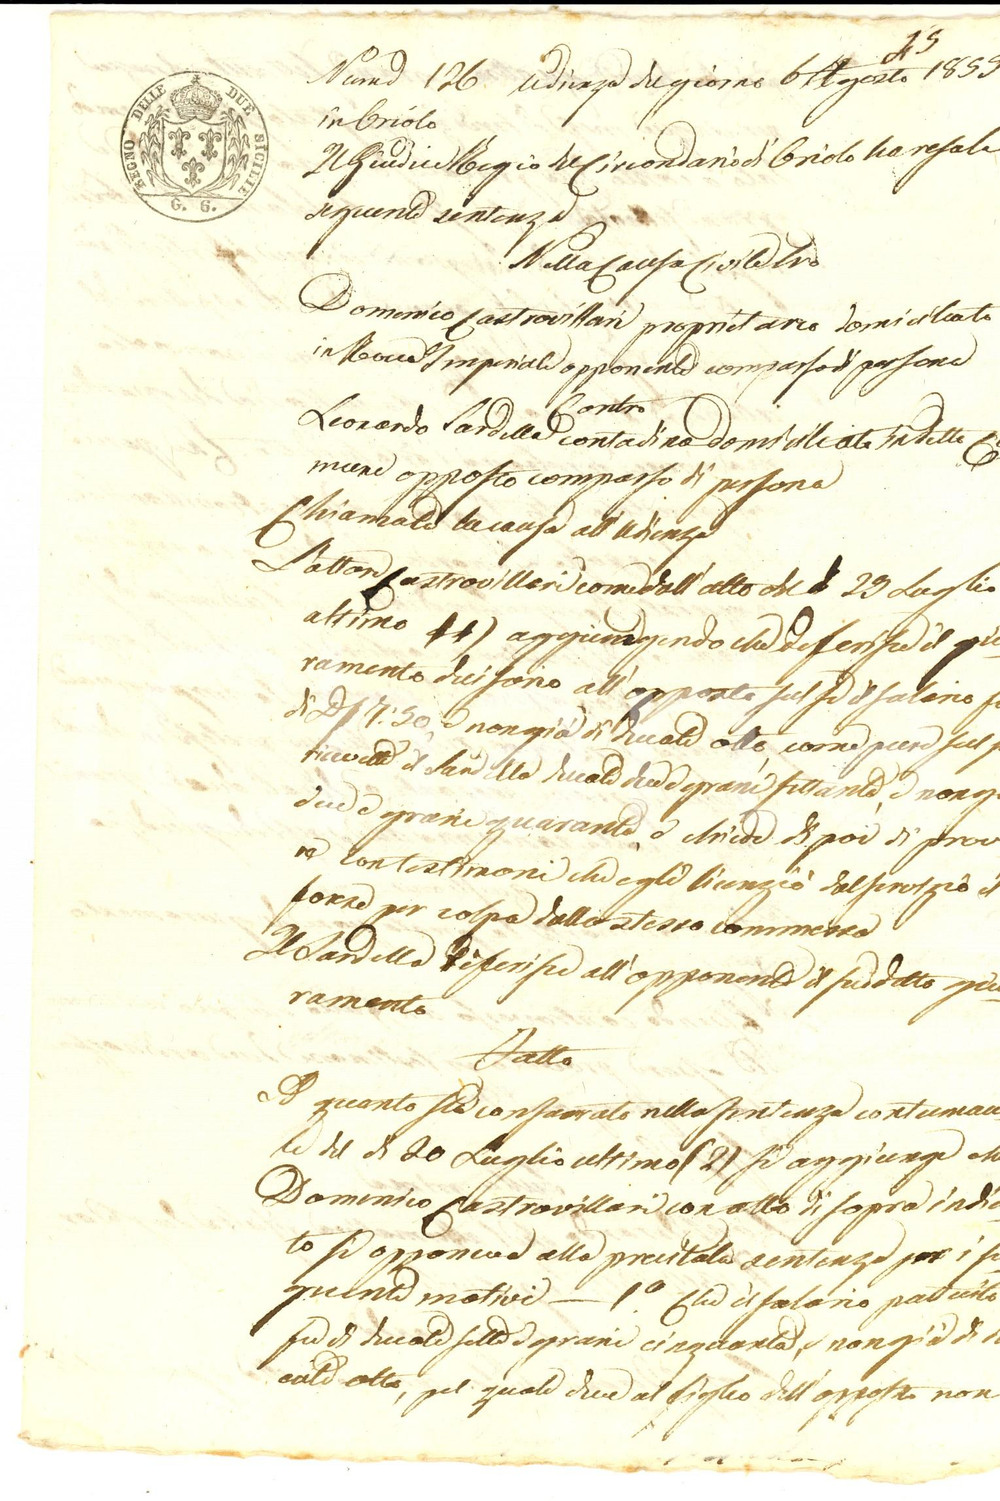 45
REGNO DELLE DUE SICILIE
G. 6.
Num° 126 Udienza del giorno 6 Agosto 1855
in Oriolo
Il Giudice Regio del Circondario di Oriolo ha resa la
seguente sentenza
Nella Causa Civile tra
Domenico Castrovillari proprietario domiciliato
in Rocca Imperiale opponente comparso di persona
Contro
Leonardo Sardella contadino domiciliato in detto Co
mune opposto comparso di persona
Chiamata la causa all'udienza
L'attore Castrovillari come dall'atto del dì 23 Luglio
ultimo (1) aggiungendo che deferisce il giu
ramento decisorio all'opposto sul se il salario fu
di D.i 7:50, e non già di ducati otto, come pure sul
ricevette il Sardella ducati due e grani settanta, e non gi
due e grani quaranta, e chiede di poi di prova
re con testimoni che egli licenziò dal servizio il
forse per colpa dallo stesso commessa
Il Sardella deferisce all'opponente il suddetto giu
ramento
Fatto
A quanto sta consacrato nella sentenza contumacia
le del dì 20 Luglio ultimo (2) si aggiunge che
Domenico Castrovillari con atto di sopra indica
to si opponeva alla precitata sentenza per i se
guenti motivi — 1° Che il salario pattuito
fu di ducati sette e grani cinquanta, e non già di du
cati otto, pel quale deve al figlio dell'opposto non